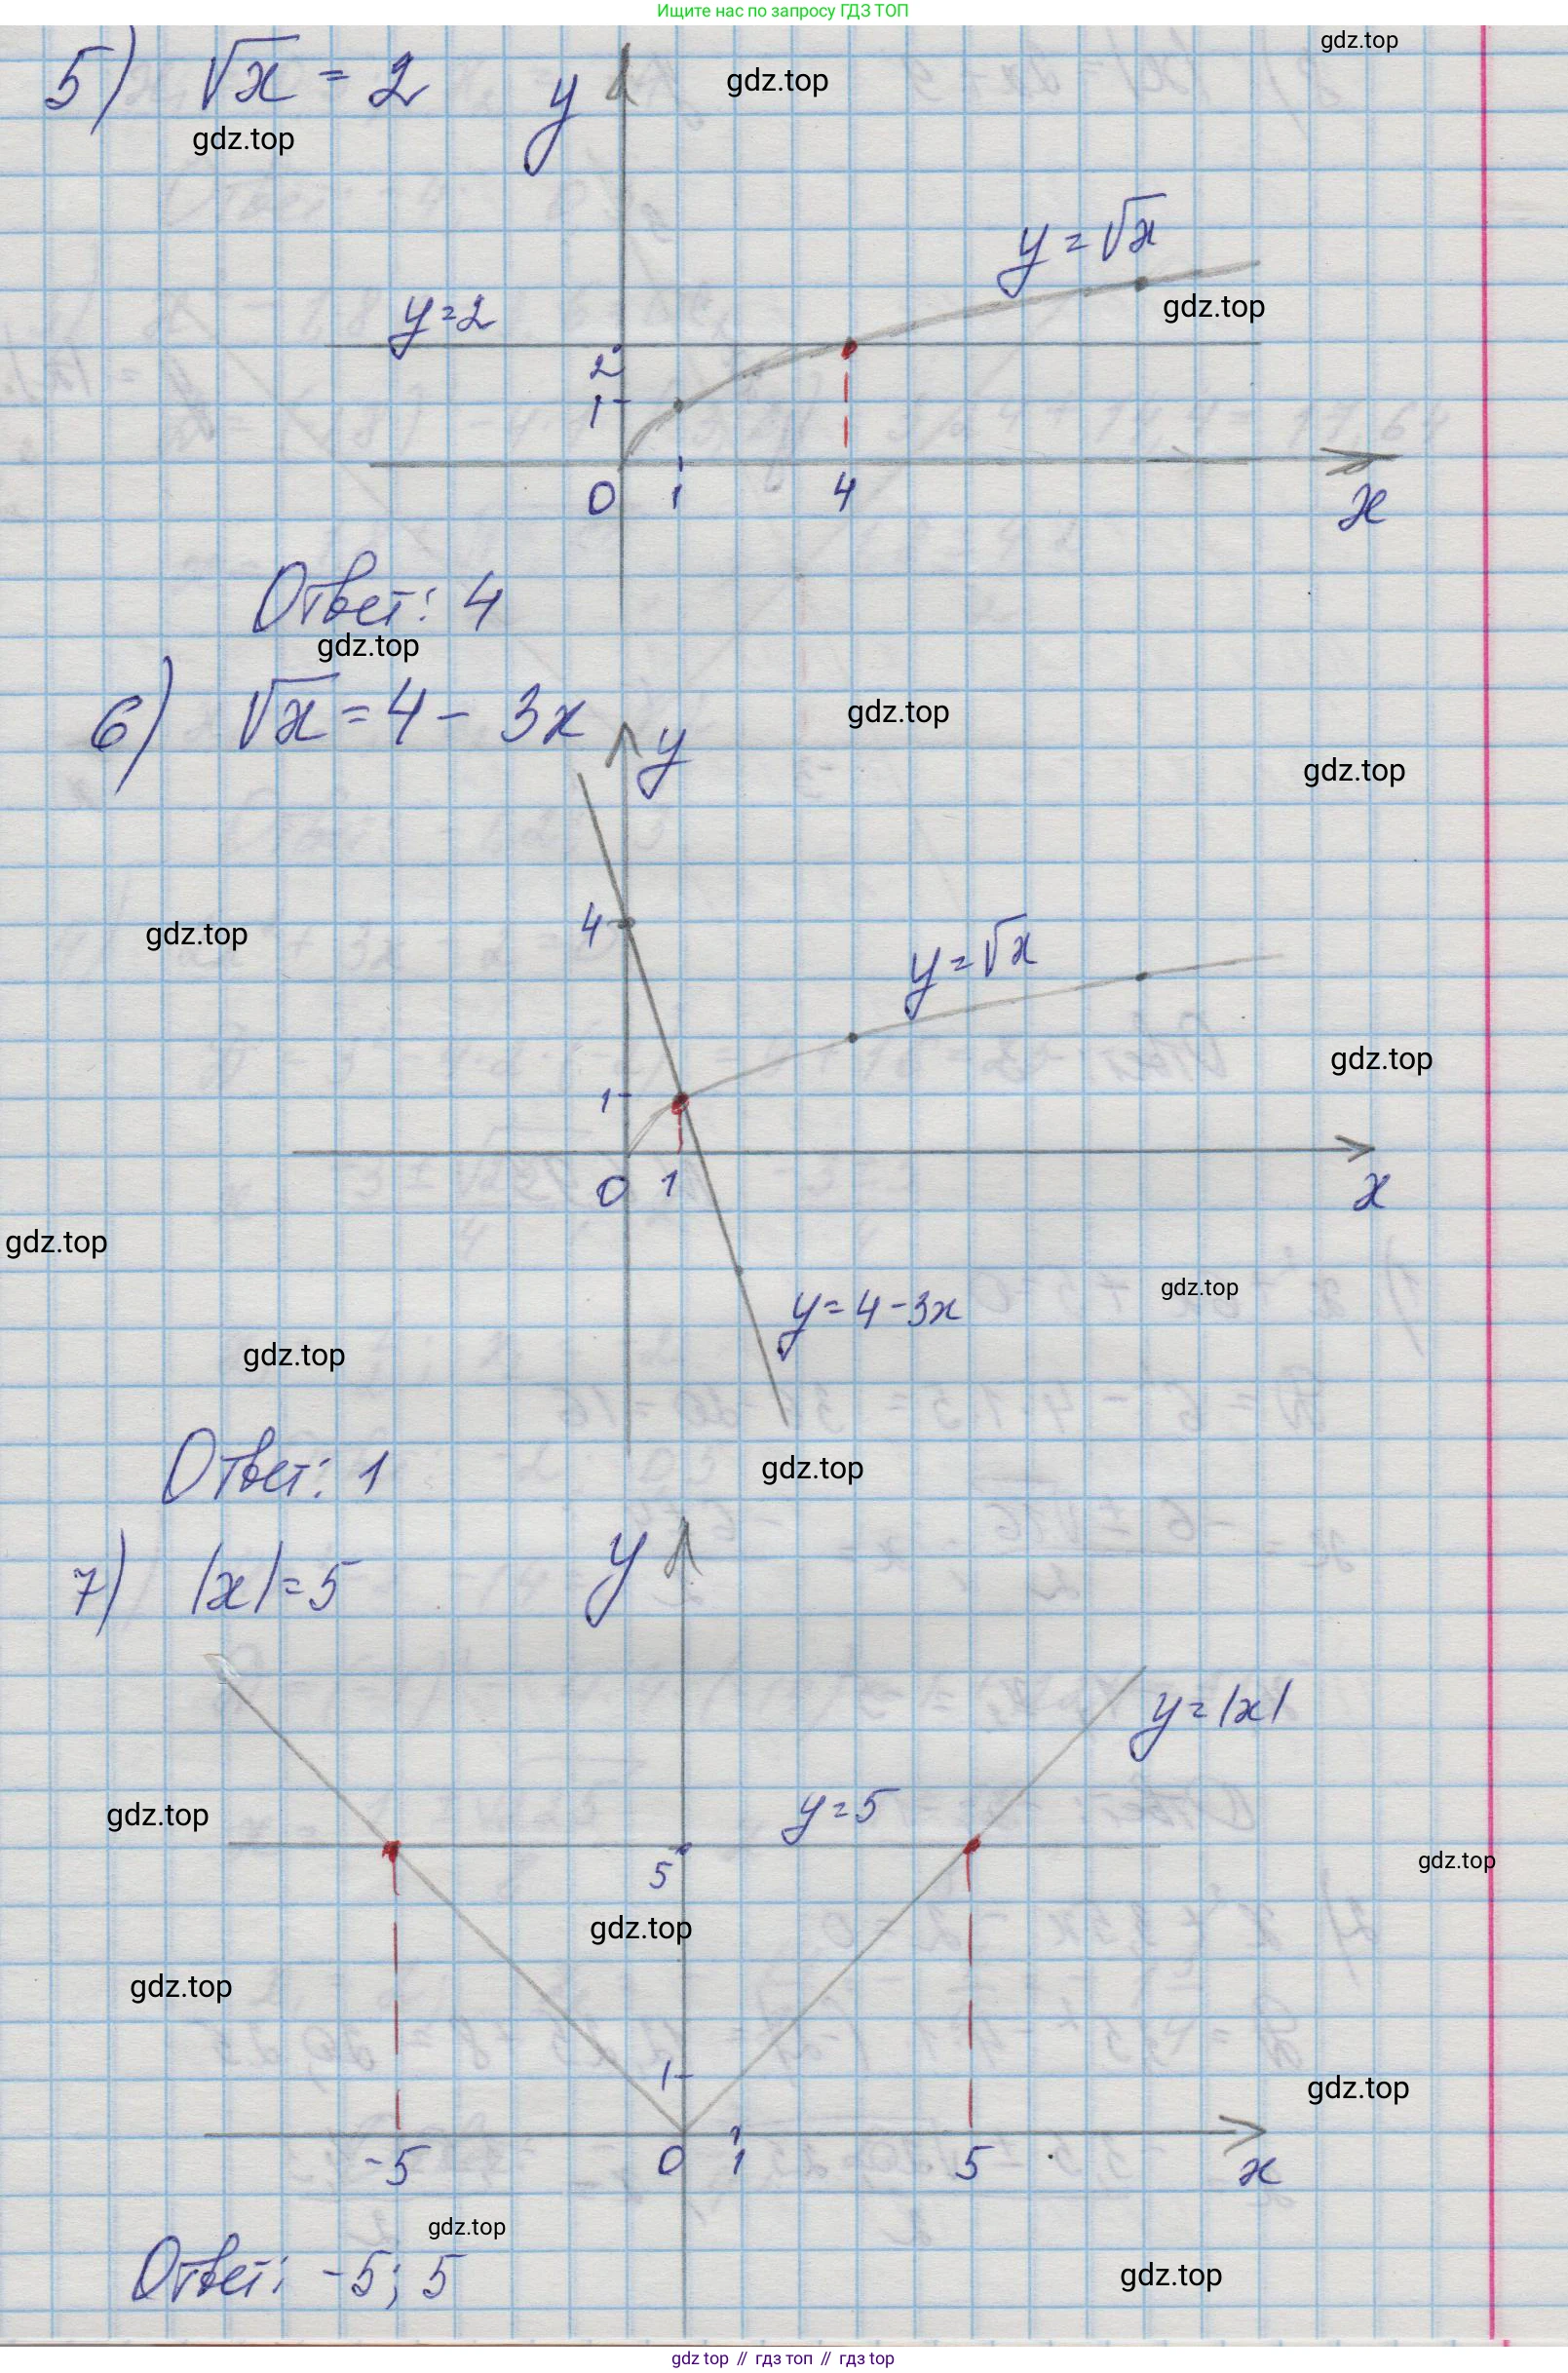 Ищите нас по запросу ГДЗ ТОП
gdz.top
5) √x = 2
y
gdz.top
gdz.top
y = √x
gdz.top
y=2
2
1
0 1 4 x
Ответ: 4
gdz.top
6) √x = 4 - 3x
y
gdz.top
gdz.top
4
gdz.top
y = √x
gdz.top
1
0 1 x
gdz.top
gdz.top
y = 4 - 3x
gdz.top
gdz.top
Ответ: 1
7) |x| = 5
y
y = |x|
gdz.top
y = 5
5
gdz.top
gdz.top
gdz.top
1
gdz.top
-5 0 1 5 x
gdz.top
Ответ: -5; 5
gdz.top
gdz.top // гдз топ // гдз top